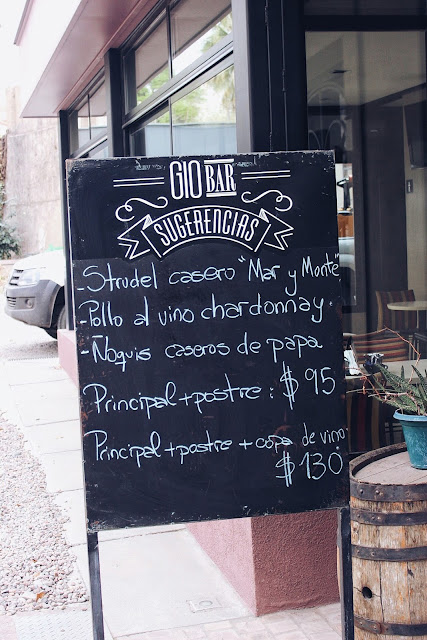 GIO BAR
SUGERENCIAS
-Strudel casero "Mar y Monte"
-Pollo al vino chardonnay.
-Ñoquis caseros de papa
Principal+postre: $95
Principal+postre+copa de vino.
$130